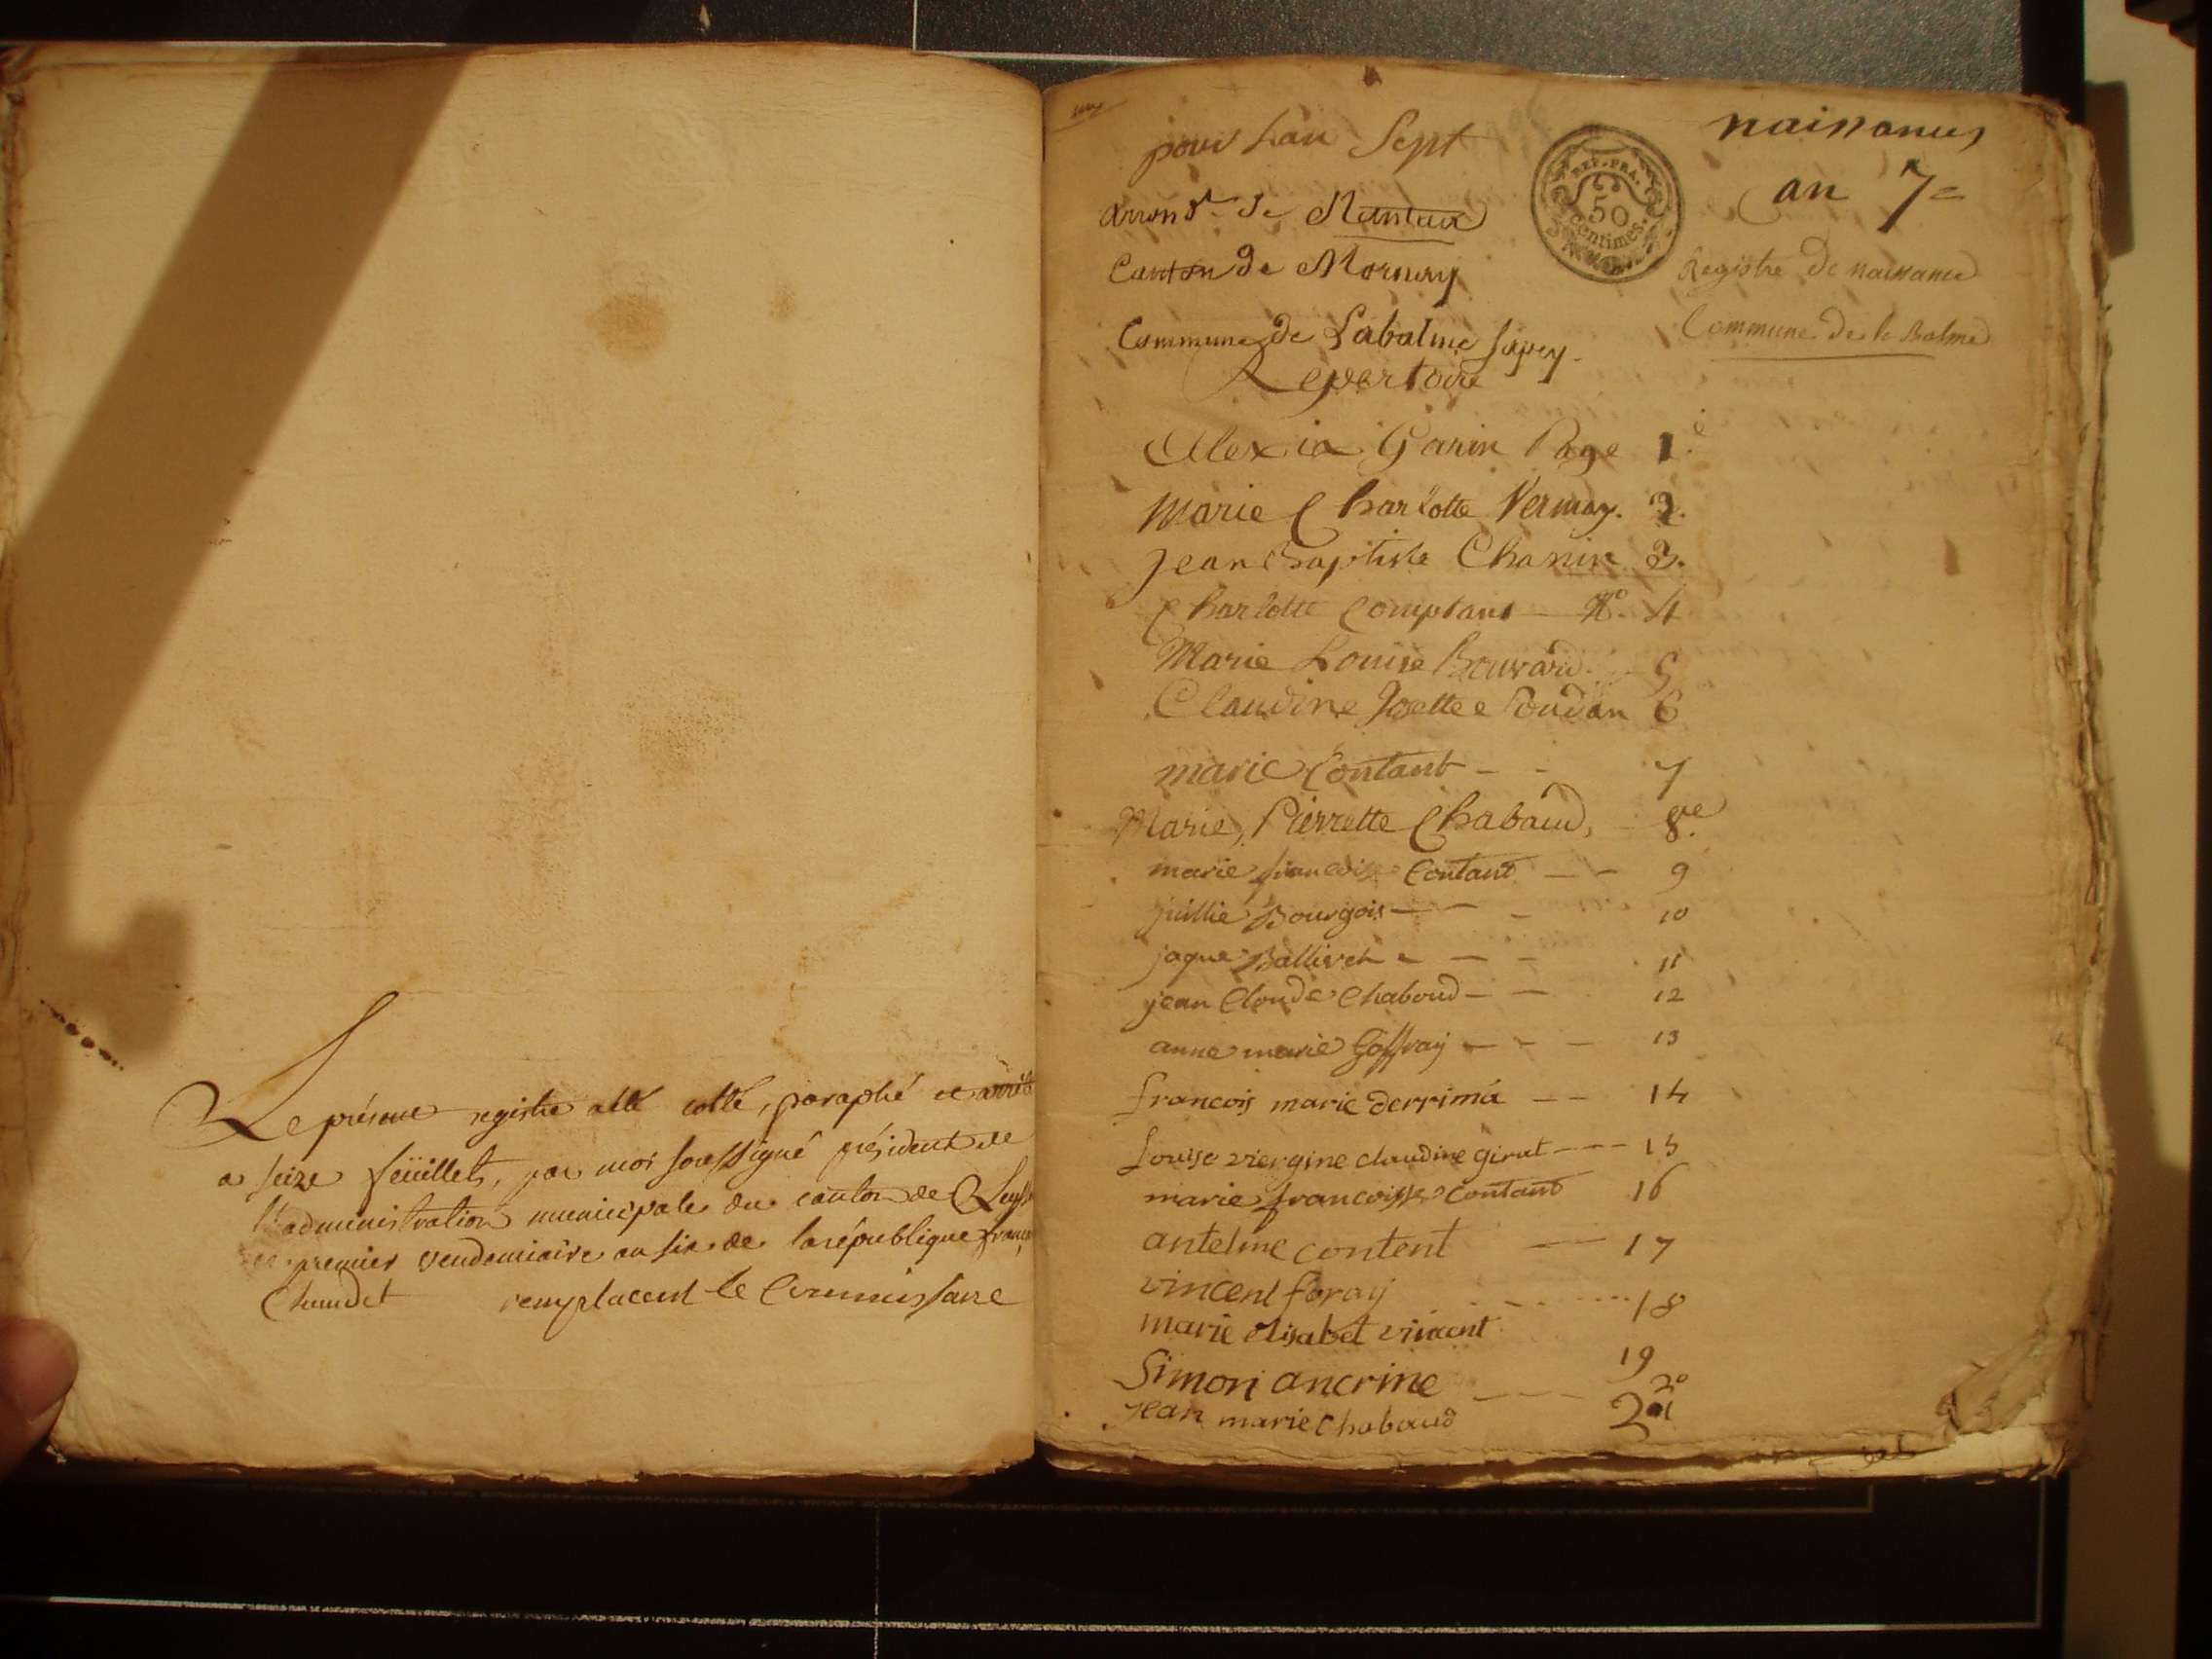 Le présent registre a été cotté, paraphé et arrêté
a seize feüillets, par moi soussigné président de
l'administration municipale du canton de
premier vendemiaire an six de la république
Chaudet remplacent le Commissaire
pour Lan Sept
naissances
an 7e
REP. FRA.
50
Centimes.
arrond.t de Nantua
Canton de Mornay
Registre de naissance
Commune de Labalme Sapey.
Commune de la Balme
Repertoire
Alexia Garin Page 1.e
Marie Charlotte Vernay. 2.
Jean Baptiste Chanin 3.
Charlotte Comptant — N.o 4
Marie Louise Bouvard 5
Claudine Josette Poudan 6
marie Contant - - 7
Marie, Pierrette Chabaud, 8.e
marie francoise Contant — - 9
jullie Bourgois — - 10
jaque Ballivet - — - 11
jean Cloude Chaboud — — 12
anne marie Goffray — - — 13
francois marie derrima — — 14
Louise viergine claudine girut — — 15
marie francoisse Contant 16
antelme content — 17
vincent foray ... 18
marie elisabet vincent 19
Simon ancrine — 20
jean marie chabaud 21